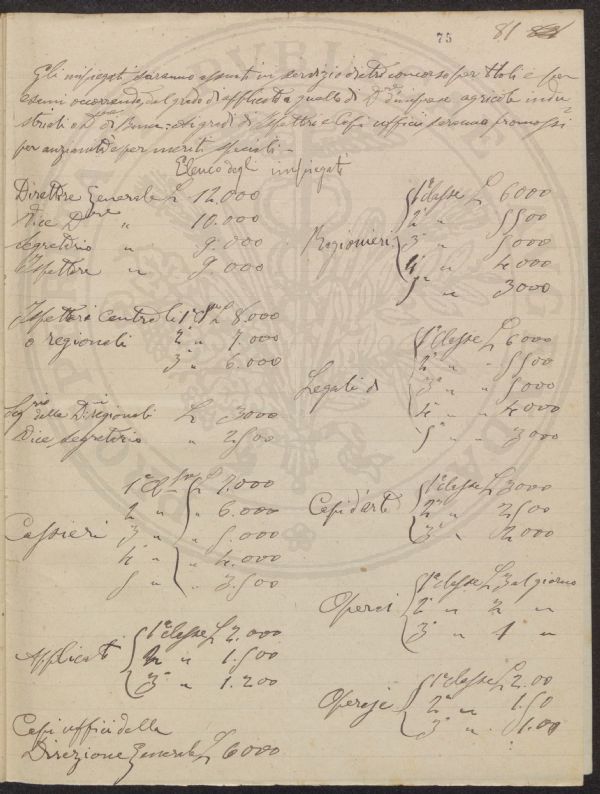 75 81
Gli impiegati saranno assunti in servizio dietro concorso per titoli e per
esami occorrendo, dal grado di applicato a quello di
striali o di ai gradi di Ispettori e Capi ufficii saranno promossi
per anzianità e per meriti speciali. -
Elenco degli impiegati
Direttore Generale L 12.000
Vice Dre " 10.000
Segretario " 9.000
Ispettore " 9.000
Ispettori centrali 1a L 8.000
o regionali 2a " 7.000
3a " 6.000
della regionali L 3000
Vice Segretario " 2500
Cassieri
1a L 7.000
2a " " 6.000
3a " " 5.000
4a " " 4.000
5a " " 3.500
Applicati
1a classe L 2.000
2a " " 1.500
3a " 1.200
Capi ufficii della
Direzione Generale L 6000
Ragionieri
1a classe L 6000
2a " 5500
3a " 5000
4a " 4000
5a " 3000
Legali
1a classe L 6000
2a " " 5500
3a " " 5000
4a " " 4000
5a " " 3000
Capi d'arte
1a classe L 3000
2a " " 2500
3a " " 2000
Operai
1a classe L 3 al giorno
2a " 2 "
3a " 1 "
Operaje
1a classe L 2.00
2a " 1.50
3a " 1.00